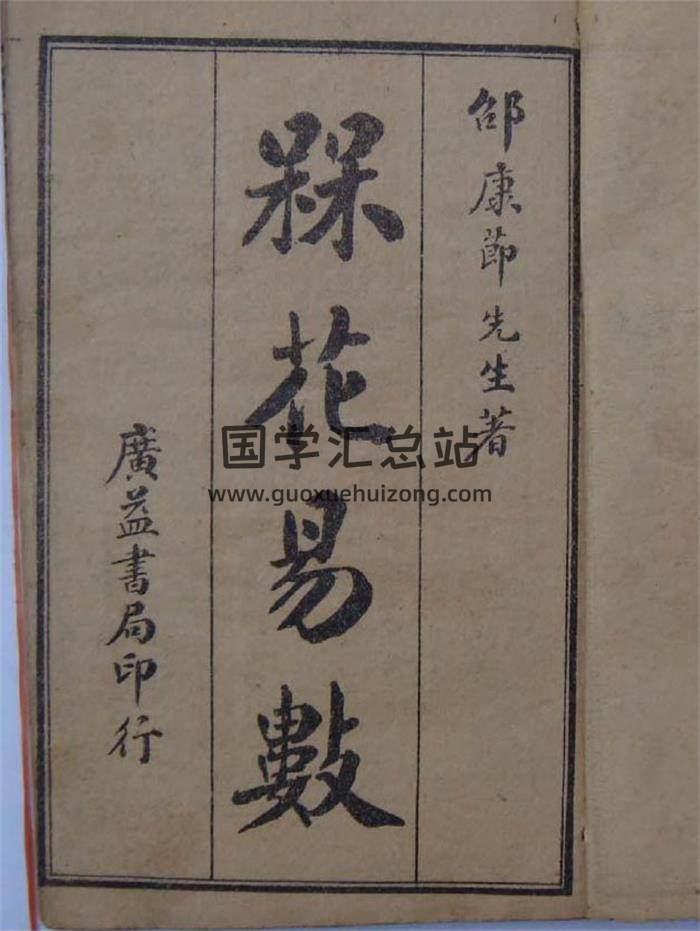 邵康節先生著
槑花易數
廣益書局印行
国学汇总站
www.guoxuehuizong.com